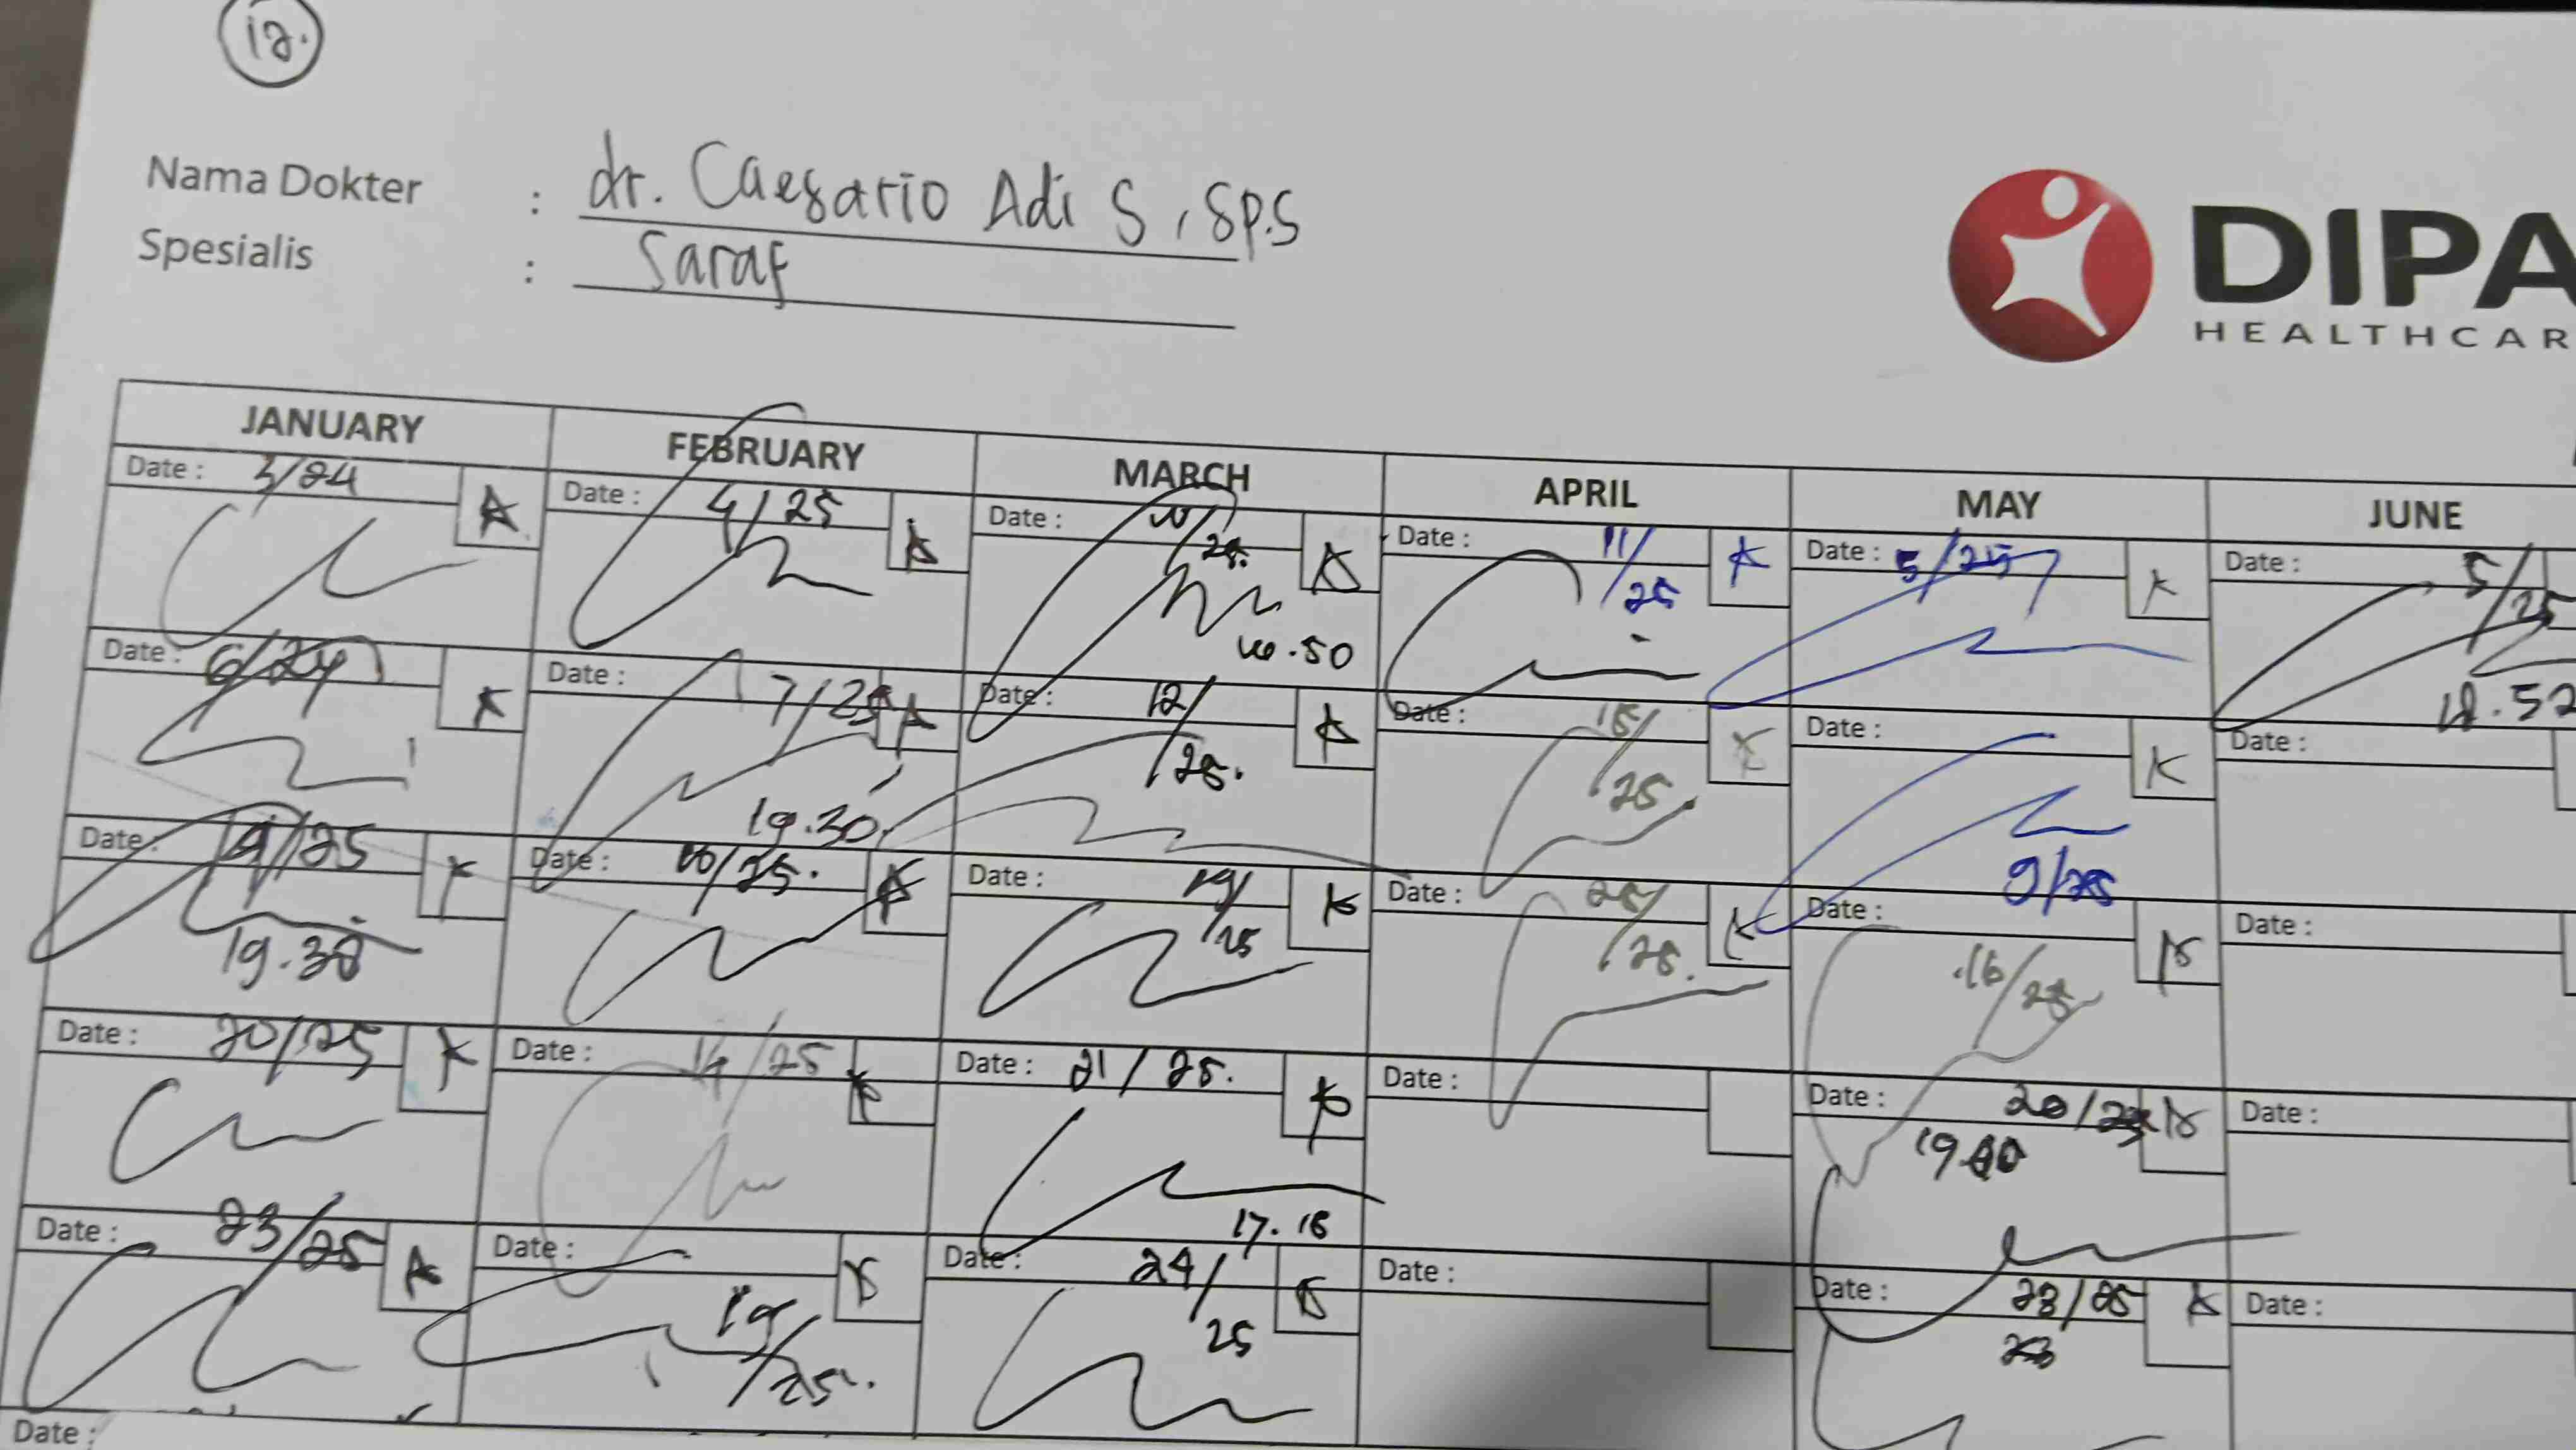 12.
Nama Dokter : dr. Caesario Adi S, Sp.S
Spesialis : Saraf
DIPA
HEALTHCAR
JANUARY FEBRUARY MARCH APRIL MAY JUNE
Date : 3/24 A Date : 4/25 A Date : 10/25. A Date : 11/25 A Date : 5/25 A Date : 5/25
16.50 18.52
Date : 6/24 A Date : 7/25 A Date : 12/25. A Date : 15/25 A Date : 9/25 A Date :
19.30
Date : 25 A Date : 10/25. A Date : 19/25 A Date : /25. A Date : 16/25 A Date :
19.30
Date : 20/25 A Date : 14/25 A Date : 21/25. A Date : Date : 20/ A Date :
17.15
Date : 23/25 A Date : 19/25. A Date : 24/25 A Date : Date : 23/25 A Date :
23
Date :